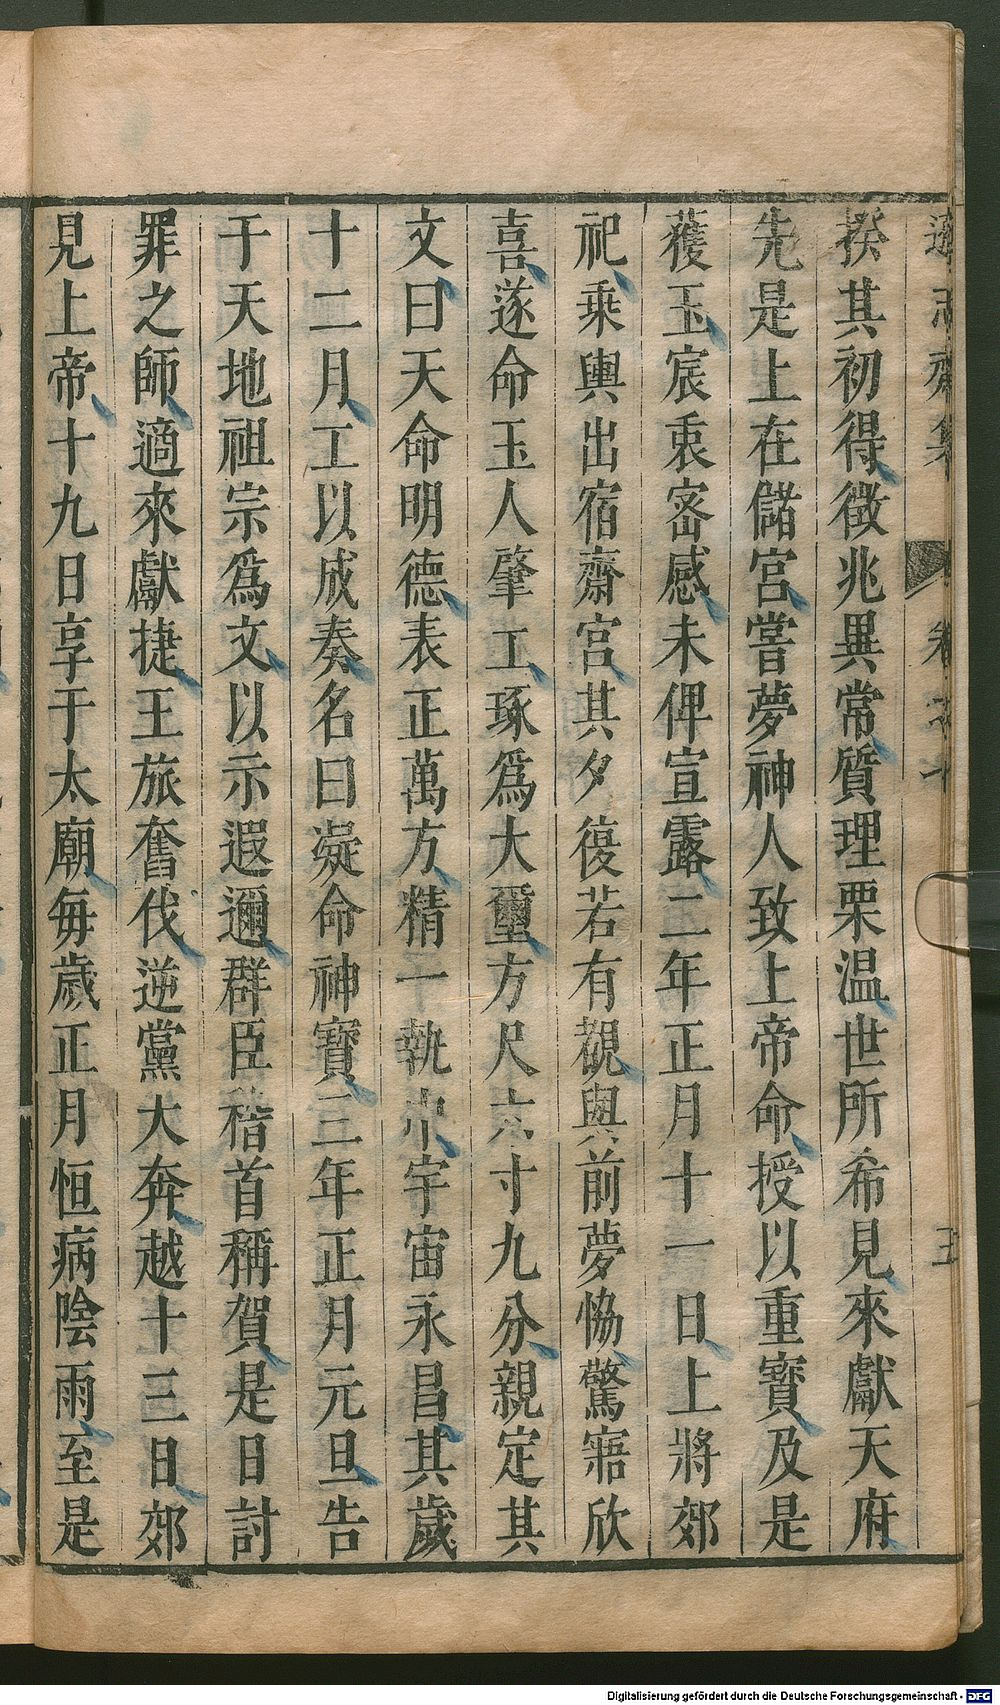 遜志齋集 卷之十 五
揆其初得徵兆異常質理栗温世所希見來獻天府
先是上在儲宮嘗夢神人致上帝命授以重寶及是
獲玉宸衷宻感未俾宣露二年正月十一日上將郊
祀乘輿出宿齋宮其夕復若有覩與前夢恊驚寤欣
喜遂命玉人肇工琢爲大璽方尺六寸九分親定其
文曰天命明德表正萬方精一執中宇宙永昌其歲
十二月工以成奏名曰凝命神寶三年正月元旦告
于天地祖宗爲文以示遐邇群臣稽首稱賀是日討
罪之師適來獻捷王旅奮伐逆黨大奔越十三日郊
見上帝十九日享于太廟每歲正月恒病陰雨至是
Digitalisierung gefördert durch die Deutsche Forschungsgemeinschaft - DFG